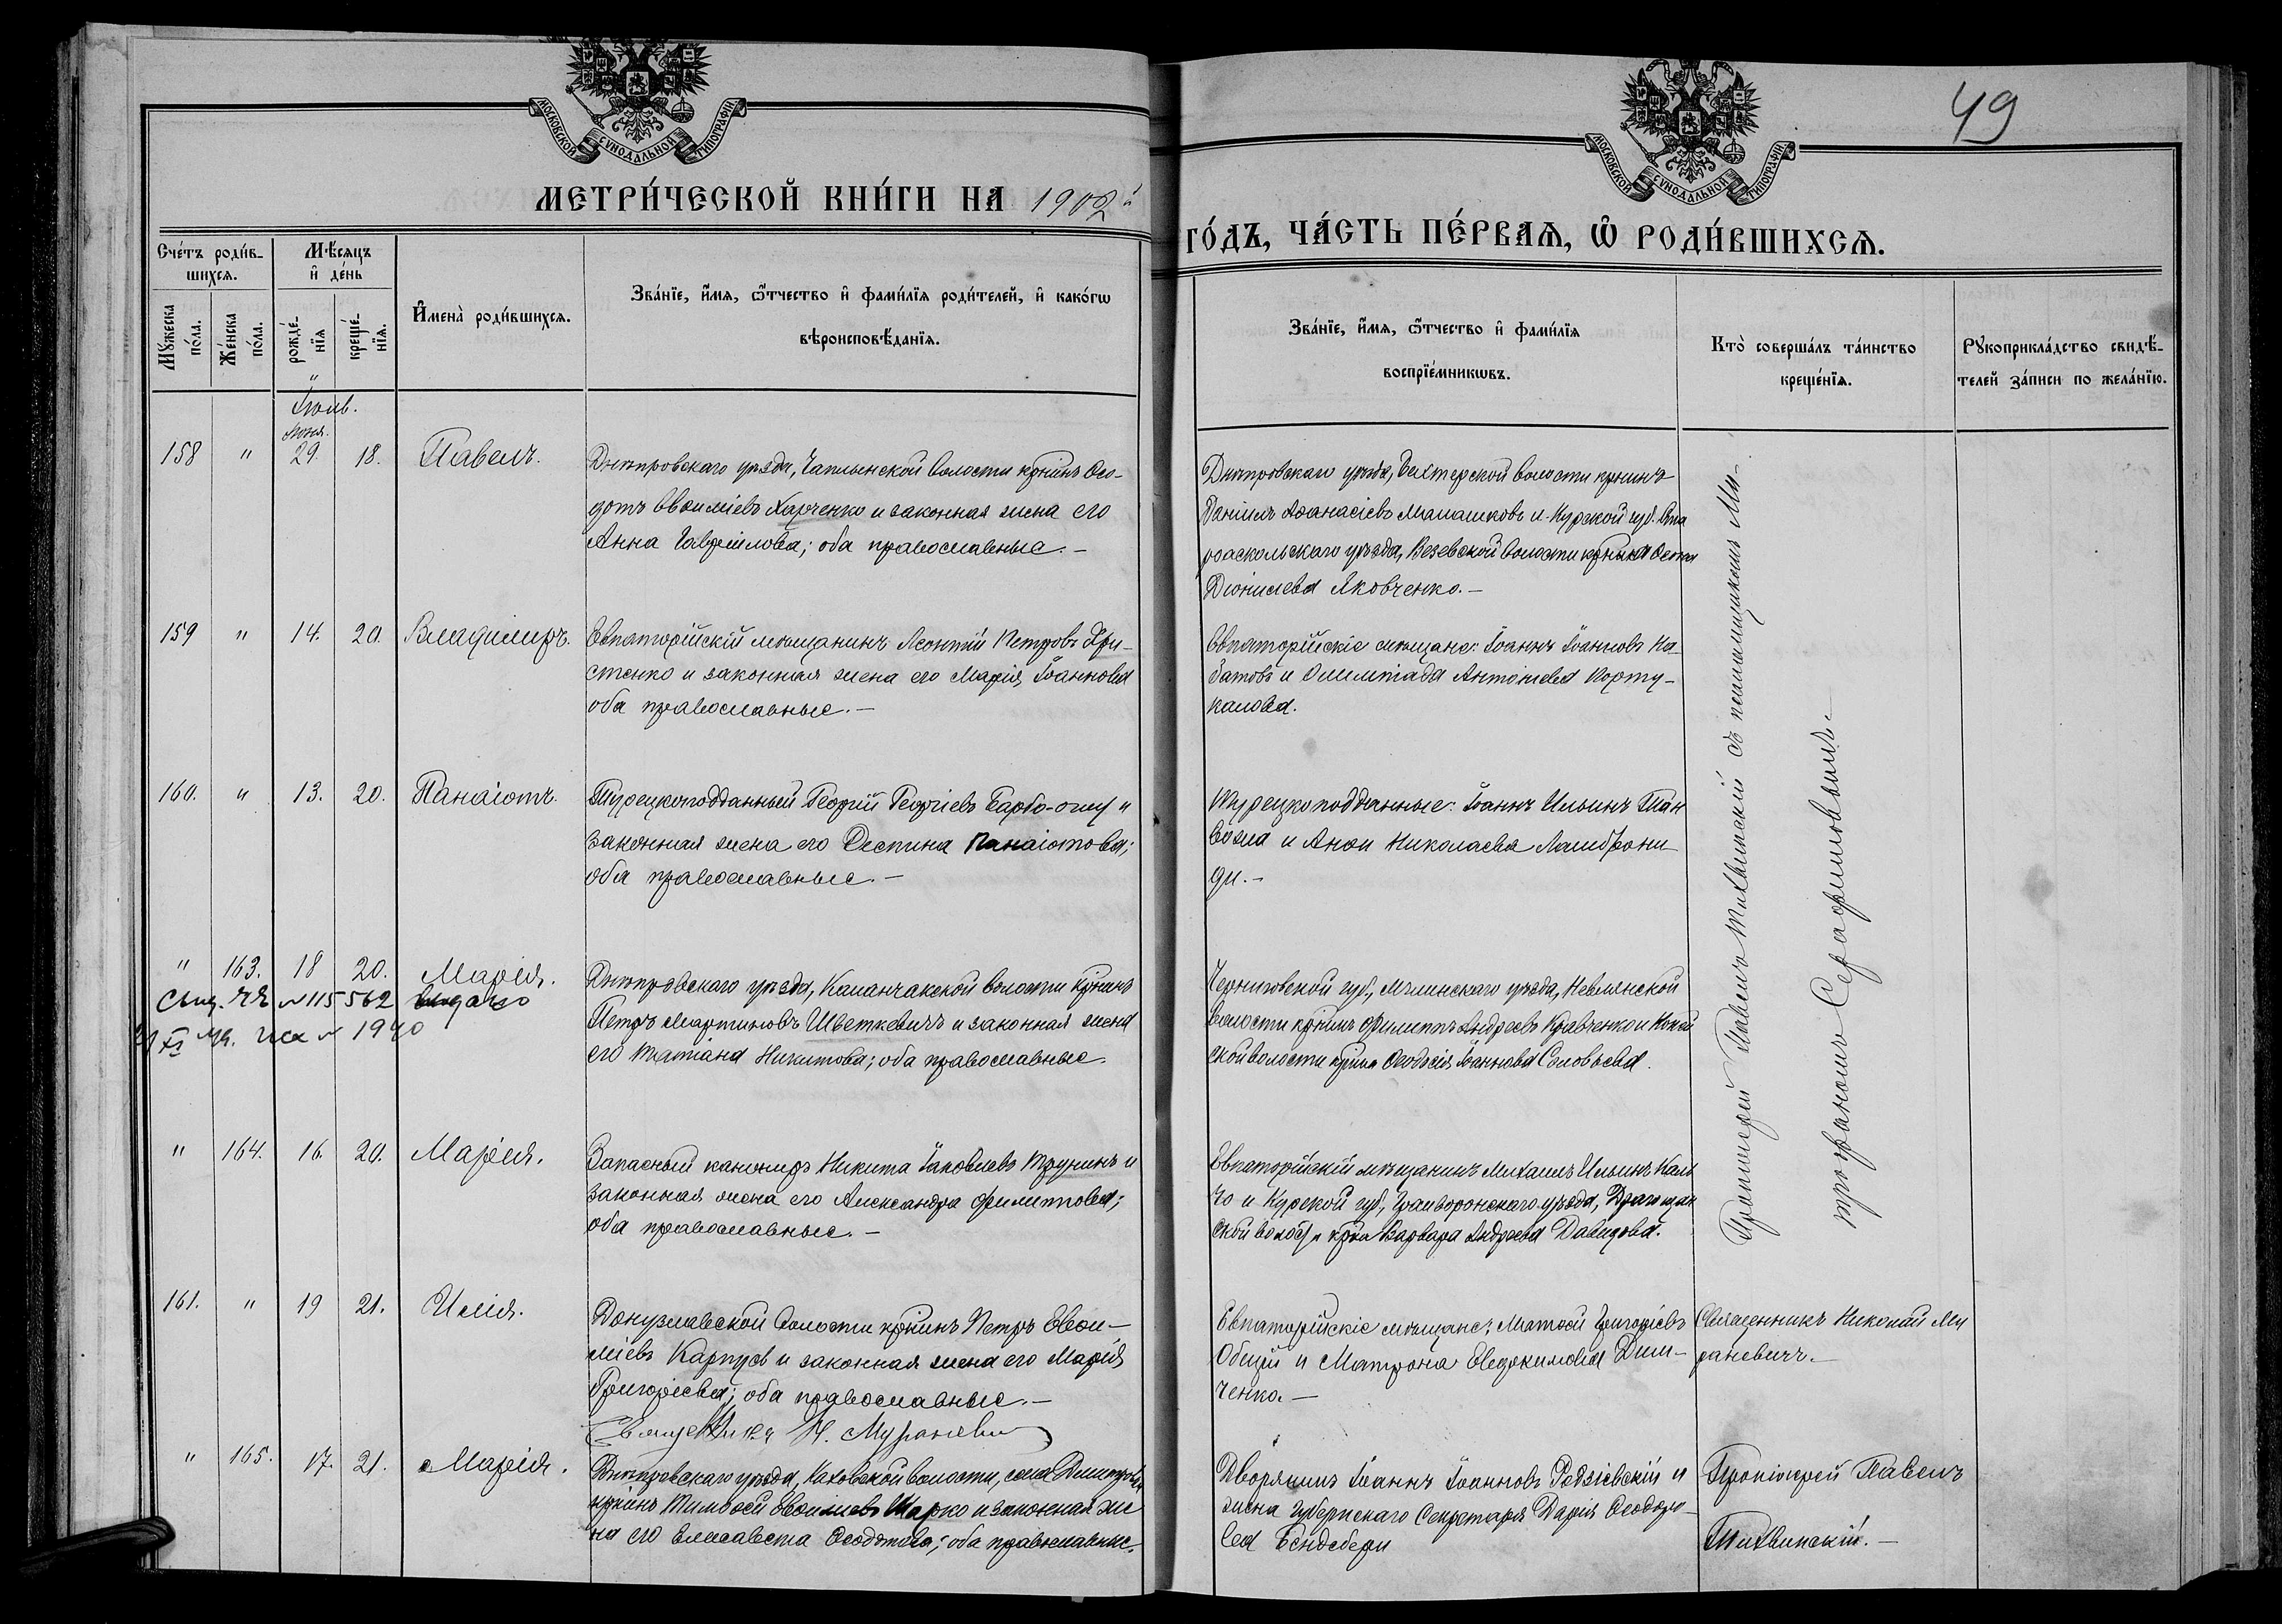 МОСКОВСКОЙ СѴНОДАЛЬНОЙ ТИПОГРАФІИ
МОСКОВСКОЙ СѴНОДАЛЬНОЙ ТИПОГРАФІИ
49
МЕТРИ́ЧЕСКОЙ КНИ́ГИ НА 1902й
ГО́ДЪ, ЧА́СТЬ ПЕ́РВАѦ, Ѡ РОДИ́ВШИХСѦ.
Сче́тъ роди́в-
шихсѧ.
Мѣ́сѧцъ
и де́нь
Мꙋ́жеска
по́ла.
Же́нска
по́ла.
рожде́-
нїѧ
креще́-
нїѧ.
Имена̀ роди́вшихсѧ.
Зва́нїе, и́мѧ, ѻ́тчество и фами́лїѧ роди́телей, и како́гѡ
вѣроисповѣ́данїѧ.
Зва́нїе, и́мѧ, ѻ́тчество и фами́лїѧ
воспрїе́мникѡвъ.
Кто̀ соверша́лъ та́инство
креще́нїѧ.
Рꙋкоприкла́дство свидѣ́-
телей за́писи по жела́нїю.
Іюль.
Іюня.
158 " 29. 18. Павелъ.
Днѣпровскаго уѣзда, Чаплынской волости крнинъ Ѳео-
дотъ Евѳиміевъ Харченко и законная жена его
Анна Гаврiилова; оба православные. —
Днѣпровскаго уѣзда, Бехтерской волости крнинъ
Даніилъ Аѳанасіевъ Малашковъ и Курской губ. Ста
рооскольскаго уѣзда, волости
Діонисіева Яковченко. —
159 " 14. 20. Владиміръ.
Евпаторійскій мѣщанинъ Леонтій Петровъ Хри-
стенко и законная жена его Марія Іоаннова
оба православные. —
Евпаторійскіе мѣщане: Іоаннъ Іоанновъ Ка-
батовъ и Олимпіада Антоніева Корту-
калова.
160. " 13. 20. Панаіотъ.
Турецкоподданный Георгій Георгіевъ Барба-оглу и
законная жена его Деспина Панаіотова;
оба православные. —
Турецкоподданные: Іоаннъ Ильинъ
и Николаева
ди. —
" 163. 18 20. Марія.
№ 115562 выдано
1940
Днѣпровскаго уѣзда, Каланчакской волости крнинъ
Петръ Мартиновъ Цвѣткевичъ и законная жена
его Татіана Никитова; оба православные.
Черниговской губ., Мглинскаго уѣзда,
волости крнинъ Филиппъ Андреевъ Кравченко и
ской волости Ѳеодосія Іоаннова Соловьева.
" 164. 16. 20. Марія.
Запасный канониръ Никита Іаковлевъ Трунинъ и
законная жена его Александра Филиппова;
оба православные. —
Евпаторійскій мѣщанинъ Михаилъ Ильинъ
и Курской губ., Грайворонскаго уѣзда,
ской Варвара Андреева Давидова.
Протоіерей Павелъ Тихвинскій съ псаломщикомъ Ми-
трофаномъ Серафимовымъ. —
161. " 19 21. Илія.
Донузлавской волости крнинъ Петръ Евѳи-
міевъ Карпусь и законная жена его Марія
Григоріева; оба православные. —
Священникъ Н. Мураневич
Евпаторійскіе мѣщане: Матѳей Григоріевъ
Общій и Матрона Евдокимова Дим-
ченко. —
Священникъ Николай Му
раневичъ. —
" 165. 17. 21. Марія.
Днѣпровскаго уѣзда, Каховской волости, села
крнинъ Тимоѳей Евѳиміевъ Шарко и законная же
на его Елисавета Ѳеодотова; оба православные.
Дворянинъ Іоаннъ Іоанновъ Родзіевскій и
жена Губернскаго Секретаря Дарія Ѳеодоро-
ва Бендебери
Протоіерей Павелъ
Тихвинскій. —